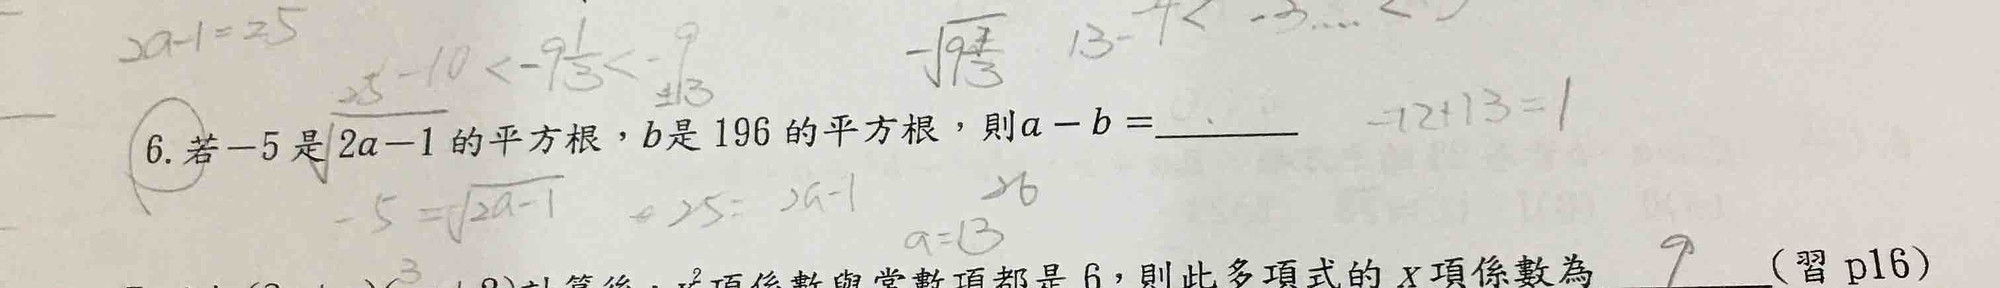 2a-1=25
-10<-9 1/3<-9
6. 若-5是2a-1的平方根,b是196的平方根,則a-b=______ -12+13=1
-5=√2a-1 25=2a-1 26
a=13
計算後,x²項係數與常數項都是6,則此多項式的x項係數為 9 (習 p16)